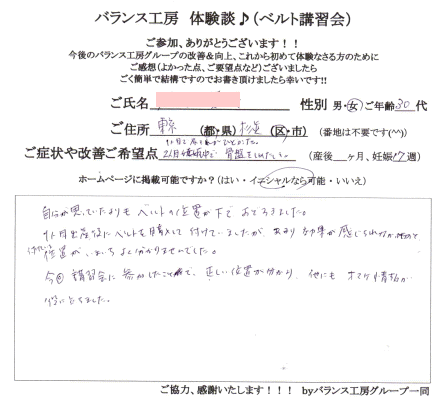 バランス工房 体験談♪(ベルト講習会)
ご参加、ありがとうございます!!
今後のバランス工房グループの改善&向上、これから初めて体験なさる方のために
ご感想(よかった点、ご要望点など)ございましたら
ごく簡単で結構ですのでお書き頂けましたら幸いです!!
ご氏名 性別 男・女 ご年齢30代
ご住所 東京 (都・県) 杉並 (区・市) (番地は不要です(^^))
ご症状や改善ご希望点 2人目妊娠中で 骨盤をしめたい。 (産後 ヶ月、妊娠17週)
ホームページに掲載可能ですか?(はい・イニシャルなら可能・いいえ)
自分が思っていたよりも ベルトの位置が下で おどろきました。
1人目出産後にベルトを購入して 付けていましたが、あまり 効果が感じられなか
位置が いまいち よく分かりませんでした。
今回 講習会に 参加したことで、正しい位置が分かり、他にも
ご協力、感謝いたします!!! byバランス工房グループ一同